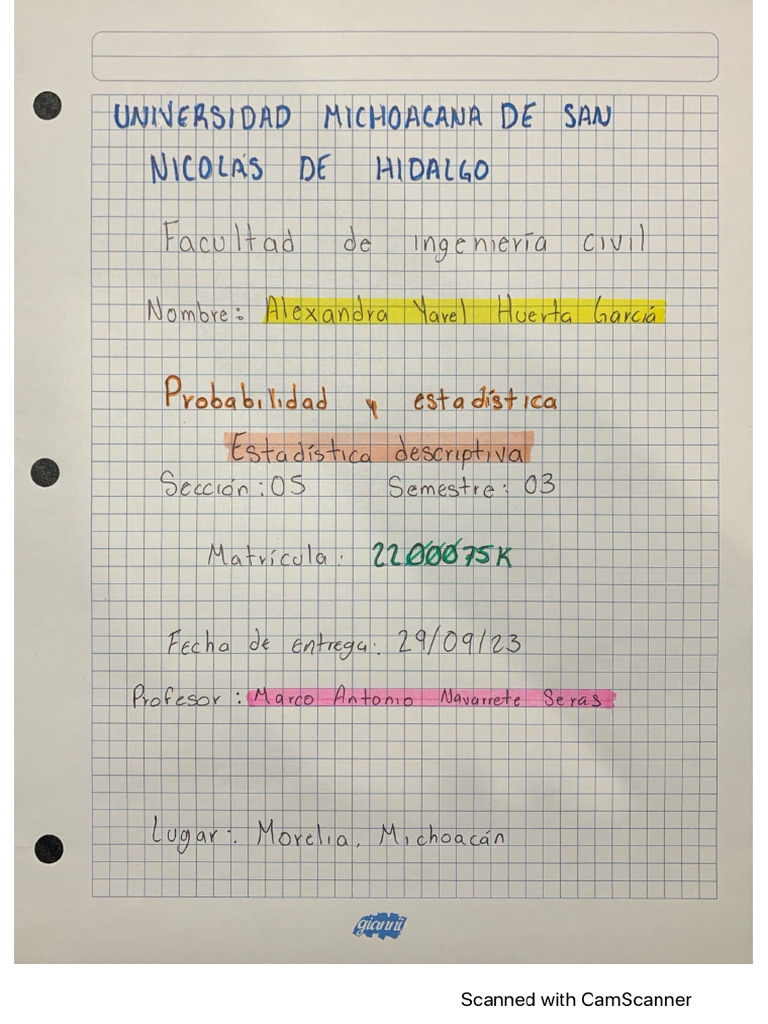 UNIVERSIDAD MICHOACANA DE SAN
NICOLÁS DE HIDALGO
Facultad de ingeniería civil
Nombre: Alexandra Yarel Huerta García
Probabilidad y estadística
Estadística descriptiva
Sección: 05 Semestre: 03
Matrícula: 2200075K
Fecha de entrega: 29/09/23
Profesor: Marco Antonio Navarrete Seras
Lugar: Morelia, Michoacán
gianni
Scanned with CamScanner